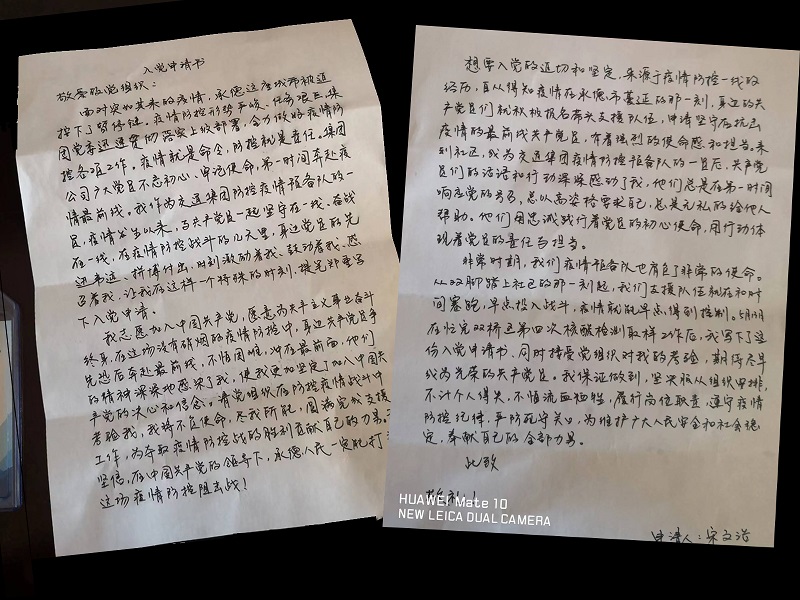 入党申请书
敬爱的党组织：
面对突如其来的疫情，承德这座城市被迫
按下了暂停键。疫情防控形势严峻、任务艰巨，集
团党委迅速贯彻落实上级部署，全力做好疫情防
控各项工作。疫情就是命令，防控就是责任。集团
公司广大党员不忘初心、牢记使命，第一时间奔赴疫
情最前线。我作为交通集团防控疫情预备队的一
员，疫情发生以来，与共产党员一起坚守在一线、奋战
在一线，在疫情防控战斗的几天里，身边党员的先
进事迹、拼搏付出，时刻激励着我、鼓动着我、感
写着我，让我在这样一个特殊的时刻，提笔郑重写
下入党申请。
我志愿加入中国共产党，愿意为共产主义事业奋斗
终身，在这场没有硝烟的疫情防控中，身边共产党员争
先恐后奔赴最前线，不惧困难，冲在最前面，他们
的精神深深地感染了我，使我更加坚定了加入中国共
产党的决心和信念。请党组织在防控疫情战斗中
考验我，我将不负使命，尽我所能，圆满完成支援
工作，为夺取疫情防控战的胜利贡献自己的力量。
坚信，在中国共产党的领导下，承德人民一定能打
这场疫情防控阻击战！
想要入党的迫切和坚定，来源于疫情防控一线的
经历，自从得知疫情在承德市蔓延的那一刻，身边的共
产党员们就积极报名奔头支援队伍，申请坚守在抗击
疫情的最前线共产党员，有着强烈的使命感和担当。来
到社区，成为交通集团疫情防控预备队的一员后，共产党
员们的话语和行动深深感动了我，他们总是在第一时间
响应党的号召，总以高姿格要求自己，总是无私的给他人
帮助。他们用忠诚践行着党员的初心使命，用行动体
现着党员的责任与担当。
非常时期，我们疫情预备队也肩负了非常的使命。
从双脚踏上社区的那一刻起，我们支援队伍就在和时
间赛跑，早点投入战斗，疫情就能早点得到控制。明明
在忙完双桥区第四次核酸检测取样工作后，我写下了这
份入党申请书、同时接受党组织对我的考验，期待尽早
成为光荣的共产党员。我保证做到，坚决服从组织安排，
不计个人得失，不惜流血牺牲，履行岗位职责，遵守疫情
防控纪律，严防死守关口，为维护广大人民安全和社会稳
定，奉献自己的全部力量。
此致
敬礼！
HUAWEI Mate 10
NEW LEICA DUAL CAMERA
申请人：宋文浩